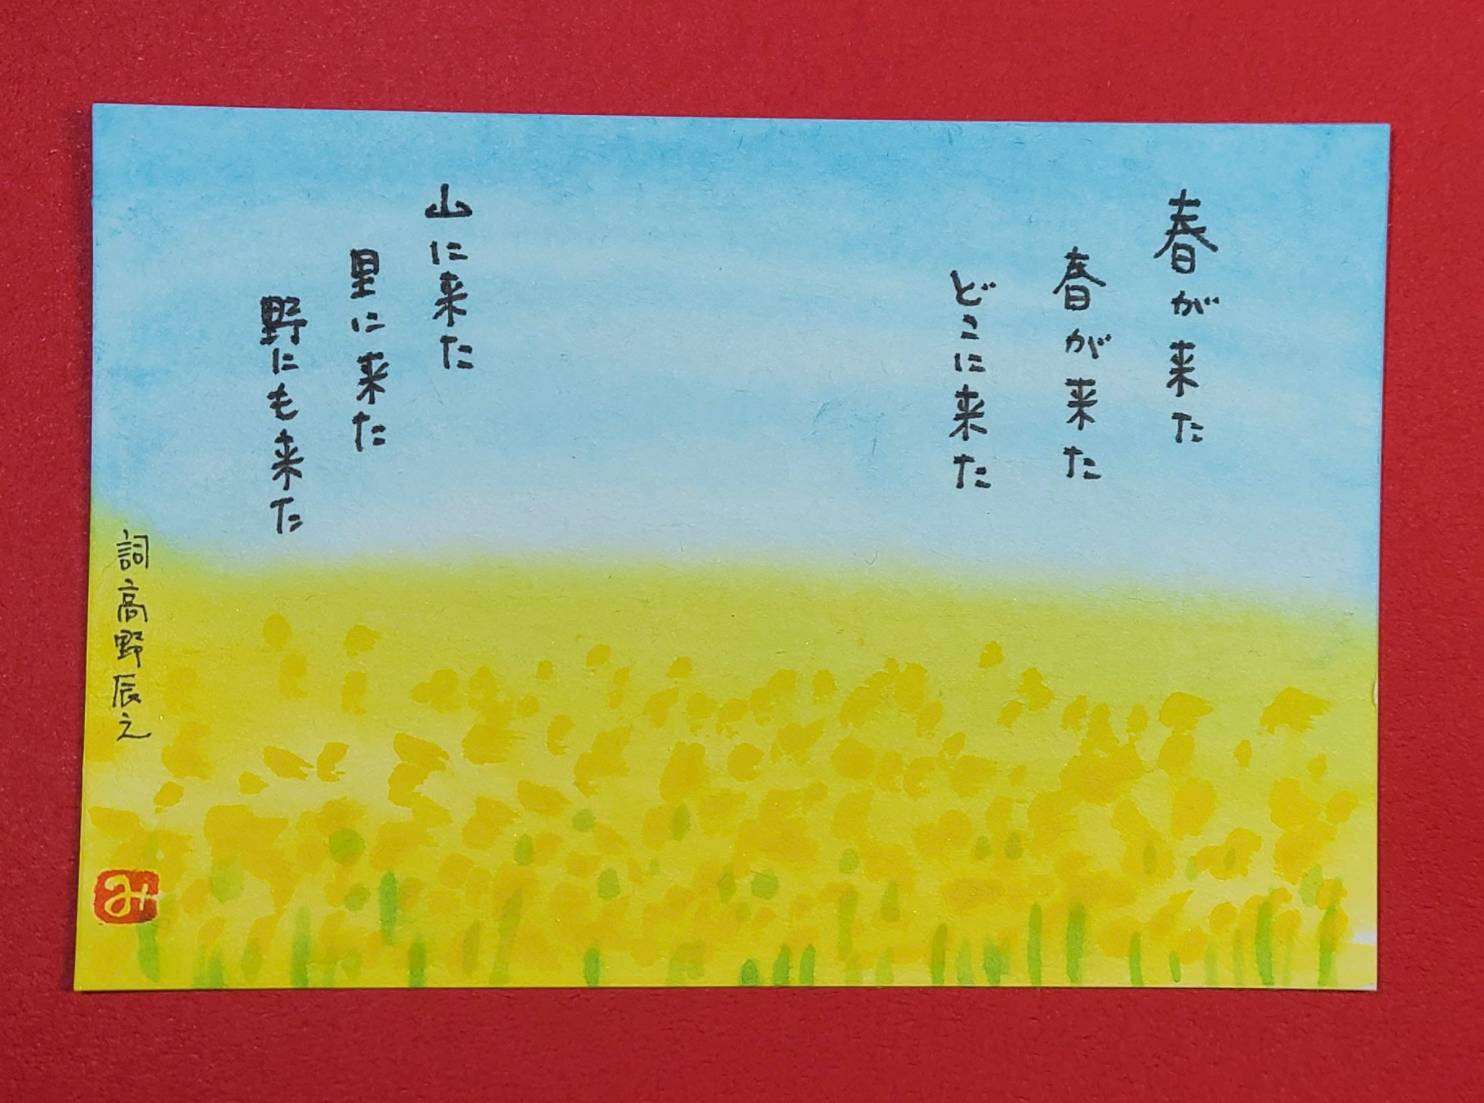 春が来た
春が来た
どこに来た
山に来た
里に来た
野にも来た
詞高野辰之
み